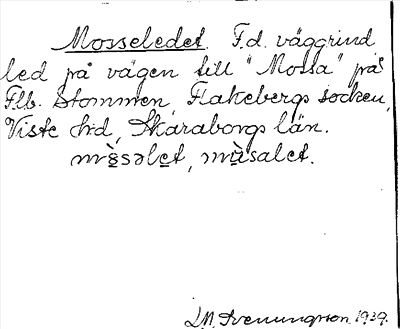 Mosseledet. F.d. väggrind
led på vägen till "Mossa" på
Flb. Stommen, Flakebergs socken,
Viste hd, Skaraborgs län.
mòsəlet, mùsalet.
Svenungsson 1939.